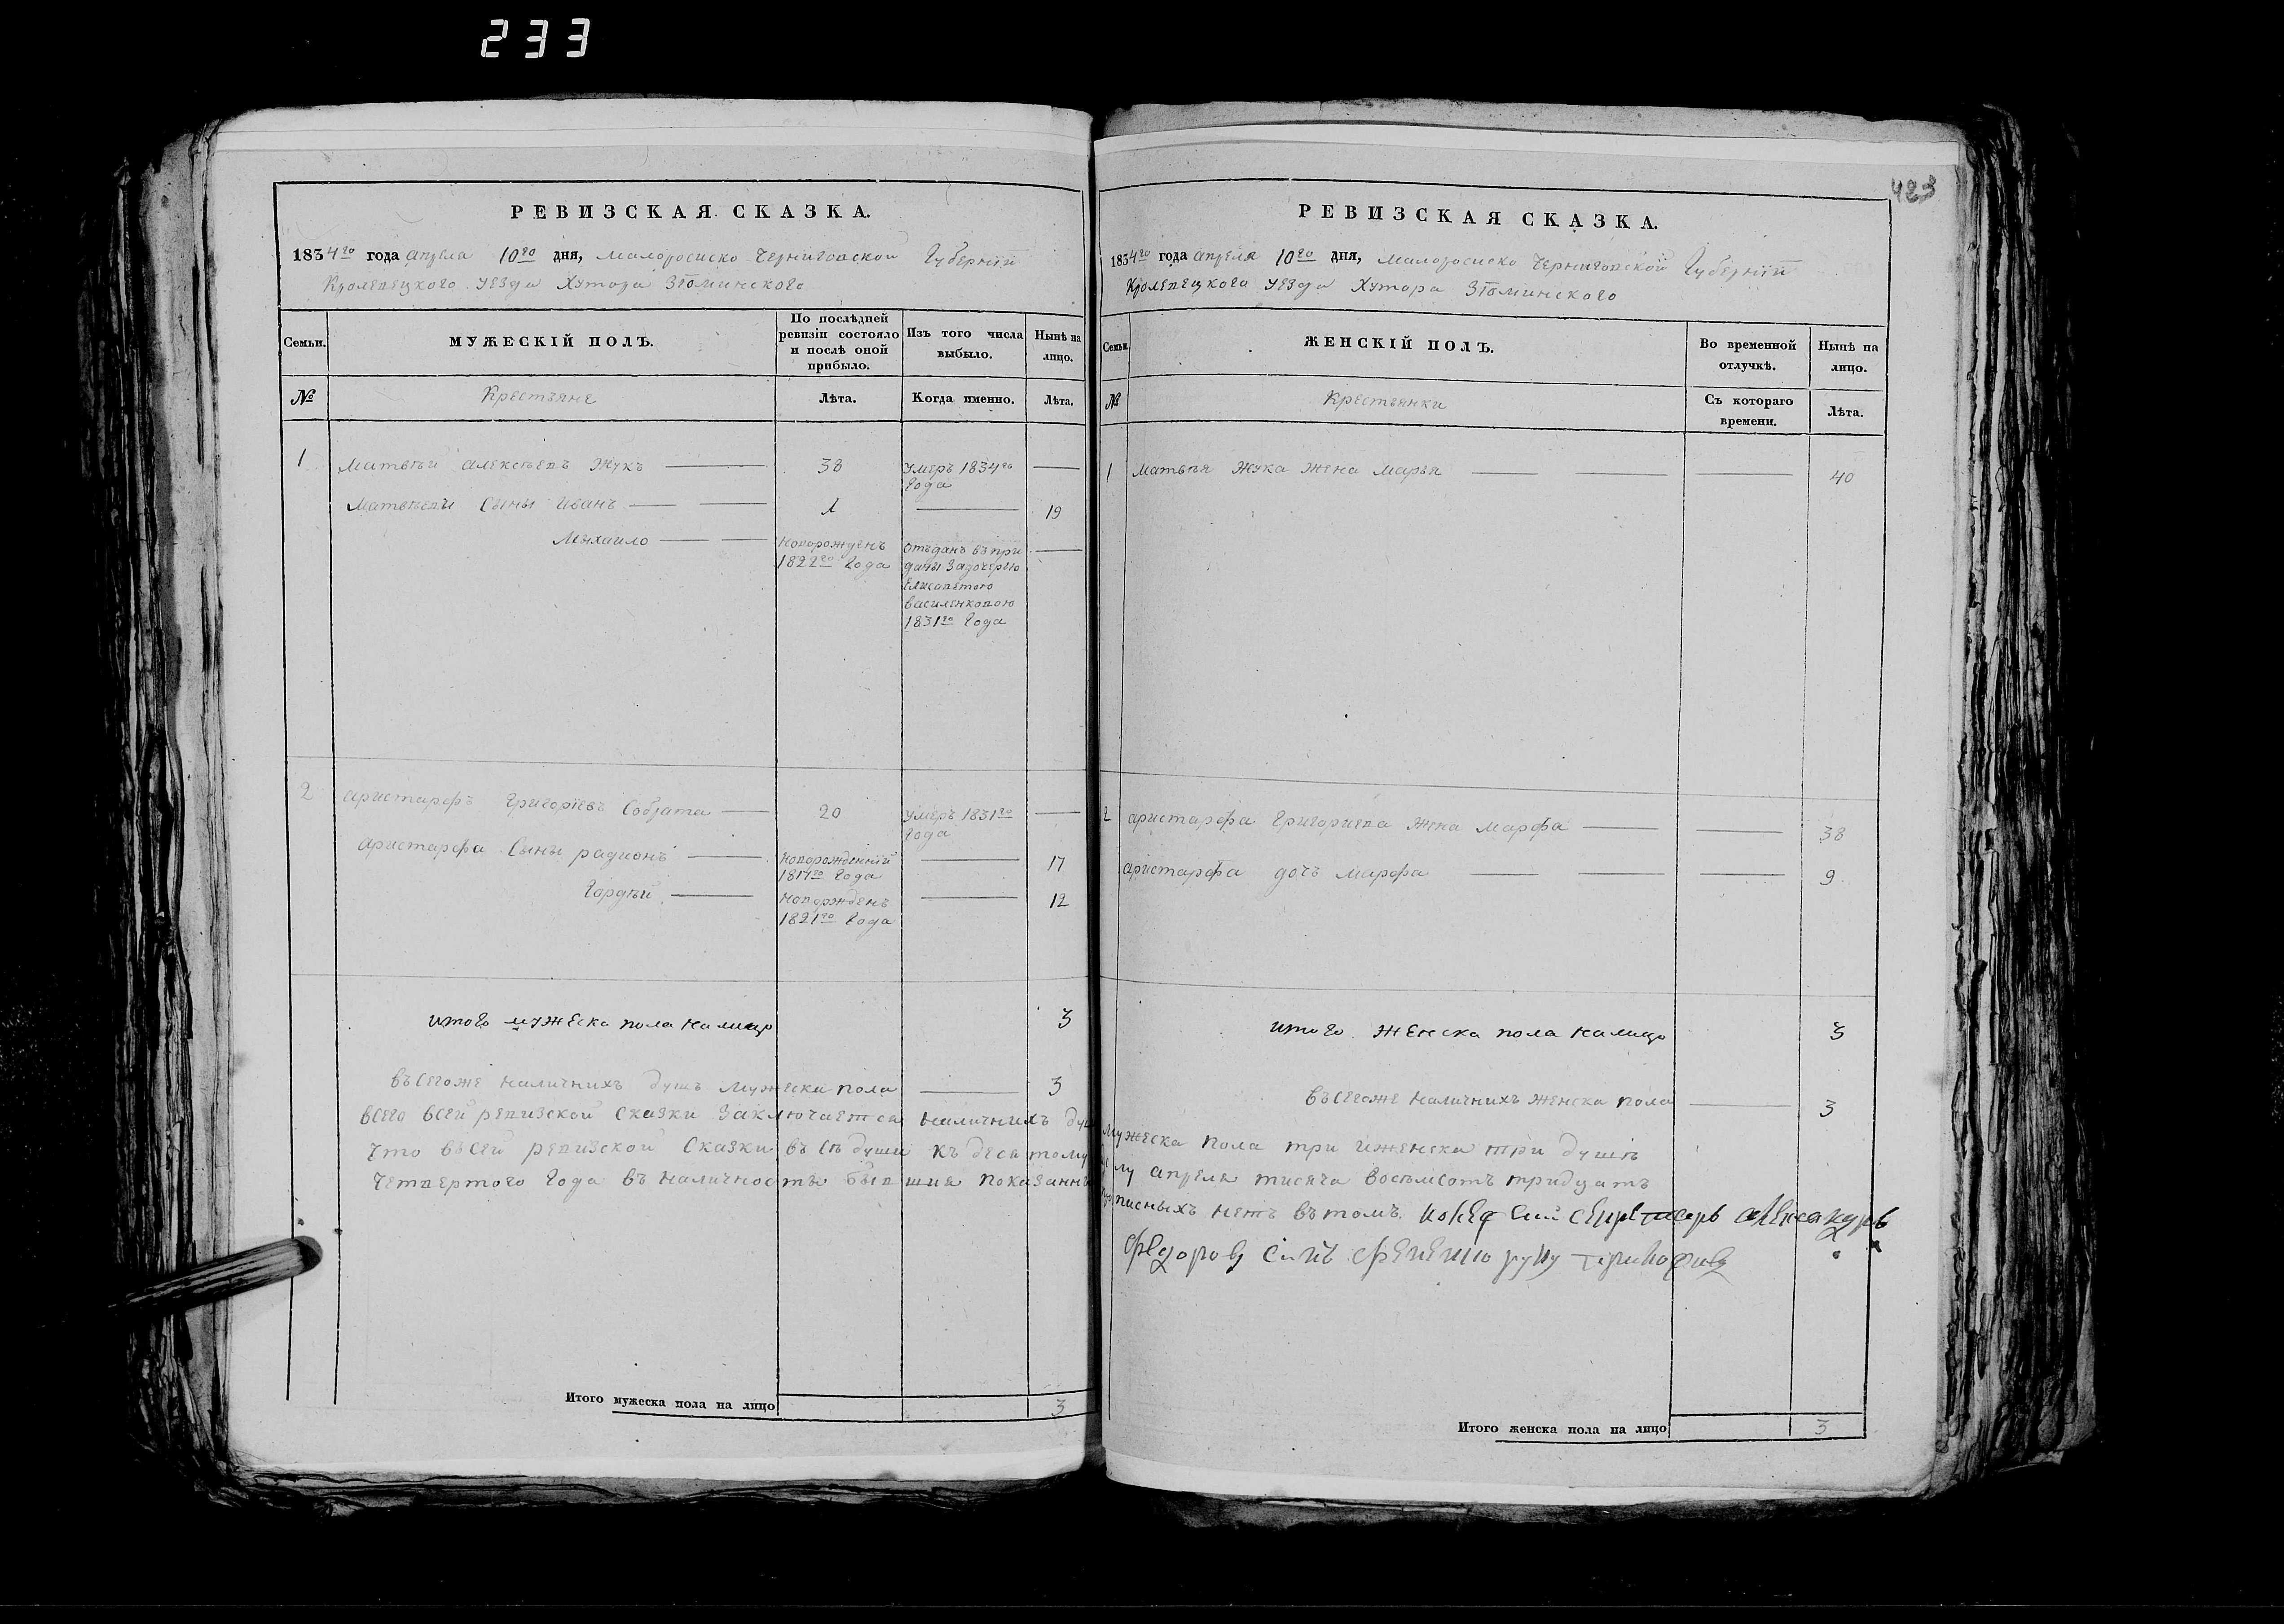 233
РЕВИЗСКАЯ СКАЗКА.
1834го года апреля 10го дня, малоросиско Черниговской Губернїи
Кролевецкого уезда Хутора
Семьи.
МУЖЕСКІЙ ПОЛЪ.
По послѣдней ревизіи состояло и послѣ оной прибыло.
Изъ того числа выбыло.
Нынѣ на лицо.
№
Крестьяне
Лѣта.
Когда именно.
Лѣта.
1 матвѣй алексѣевъ жукъ 38 умеръ 1834го года
матвѣевы сыны иванъ 1 19
михаило новорожденъ 1822го года отъданъ въ при
даны задочерью
Елисаветою
василенковою
1831го года
2 аристарфъ григоріевъ собрата 20 умеръ 1831го года
аристарфа сыны радионъ новорожденній 1817го года 17
гордѣй новорожденъ 1821го года 12
итого мужеска пола налицо 3
въсегоже наличнихъ душъ мужеска пола 3
всего всей ревизской сказки заключается наличнихъ душ
что въсей ревизской сказки въсѣ души къ десятому
четвертого года въ наличности бывшия показанны
Итого мужеска пола на лицо 3
423
РЕВИЗСКАЯ СКАЗКА.
1834го года апреля 10го дня, малоросиско Черниговской Губернїи
Кролевецкого уезда Хутора
Семьи.
ЖЕНСКІЙ ПОЛЪ.
Во временной отлучкѣ.
Нынѣ на лицо.
№
Крестьянки
Съ котораго времени.
Лѣта.
1 матвѣя жука жена марья 40
2 аристарфа григориева жена марфа 38
аристарфа дочъ марфа 9
итого женска пола налицо 3
въсегоже наличнихъ женска пола 3
мужеска пола три иженска три душѣ
апреля тисяча восемсотъ тридцатъ
писныхъ нетъ въ томъ
Федоровъ руку приложивъ
Итого женска пола на лицо 3